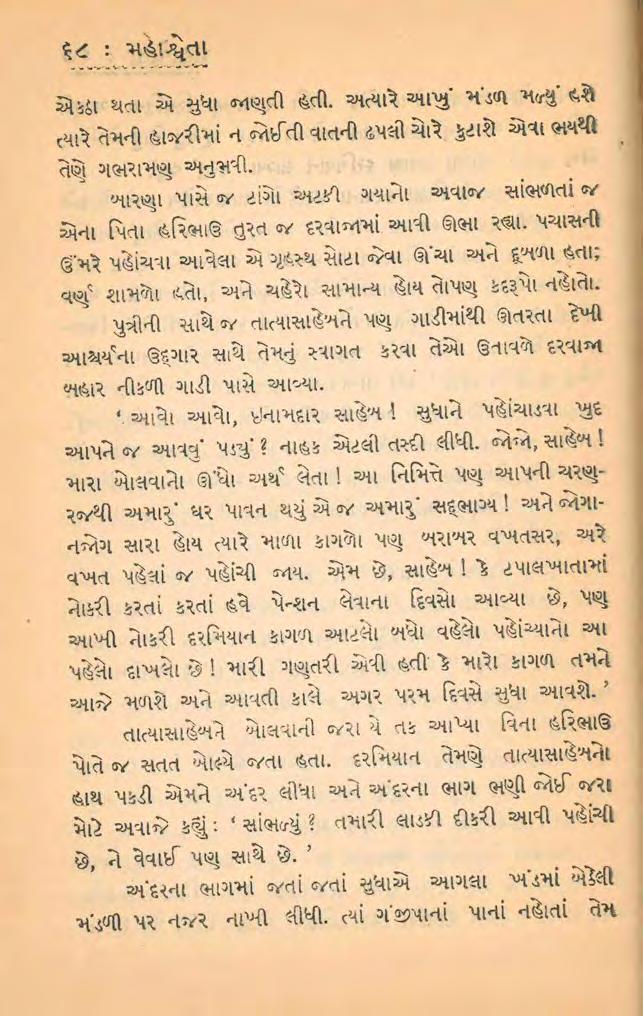 ૬૮ : મહાશ્વેતા
એકઠા થતા એ સુધા જાણતી હતી. અત્યારે આખું મંડળ મળ્યું હશે
ત્યારે તેમની હાજરીમાં ન જોઈતી વાતની ઢપલી ચોરે કુટાશે એવા ભયથી
તેણે ગભરામણ અનુભવી.
બારણા પાસે જ ટાંગો અટકી ગયાનો અવાજ સાંભળતાં જ
એના પિતા હરિભાઉ તુરત જ દરવાજામાં આવી ઊભા રહ્યા. પચાસની
ઉંમરે પહોંચવા આવેલા એ ગૃહસ્થ સોટા જેવા ઊંચા અને દૂબળા હતા;
વર્ણ શામળો હતો, અને ચહેરો સામાન્ય હોય તોપણ કદરૂપો નહોતો.
પુત્રીની સાથે જ તાત્યાસાહેબને પણ ગાડીમાંથી ઊતરતા દેખી
આશ્ચર્યના ઉદ્ગાર સાથે તેમનું સ્વાગત કરવા તેઓ ઉતાવળે દરવાજા
બહાર નીકળી ગાડી પાસે આવ્યા.
‘ આવો આવો, ઇનામદાર સાહેબ ! સુધાને પહોંચાડવા ખુદ
આપને જ આવવું પડયું ? નાહક એટલી તસ્દી લીધી. જોજો, સાહેબ !
મારા બોલવાનો ઊંધો અર્થ લેતા ! આ નિમિત્તે પણ આપની ચરણ-
રજથી અમારું ઘર પાવન થયું એ જ અમારું સદ્ભાગ્ય ! અને જોગા-
નજોગ સારા હોય ત્યારે માળા કાગળો પણ બરાબર વખતસર, અરે
વખત પહેલાં જ પહોંચી જાય. એમ છે, સાહેબ ! કે ટપાલખાતામાં
નોકરી કરતાં કરતાં હવે પેન્શન લેવાના દિવસો આવ્યા છે, પણ
આખી નોકરી દરમિયાન કાગળ આટલો બધો વહેલો પહોંચ્યાનો આ
પહેલો દાખલો છે ! મારી ગણતરી એવી હતી કે મારો કાગળ તમને
આજે મળશે અને આવતી કાલે અગર પરમ દિવસે સુધા આવશે. ’
તાત્યાસાહેબને બોલવાની જરા યે તક આપ્યા વિના હરિભાઉ
પોતે જ સતત બોલ્યે જતા હતા. દરમિયાન તેમણે તાત્યાસાહેબનો
હાથ પકડી એમને અંદર લીધા અને અંદરના ભાગ ભણી જોઈ જરા
મોટે અવાજે કહ્યું : ‘ સાંભળ્યું ? તમારી લાડકી દીકરી આવી પહોંચી
છે, ને વેવાઈ પણ સાથે છે. ’
અંદરના ભાગમાં જતાં જતાં સુધાએ આગલા ખંડમાં બેઠેલી
મંડળી પર નજર નાખી લીધી. ત્યાં ગંજીપાનાં પાનાં નહોતાં તેમ